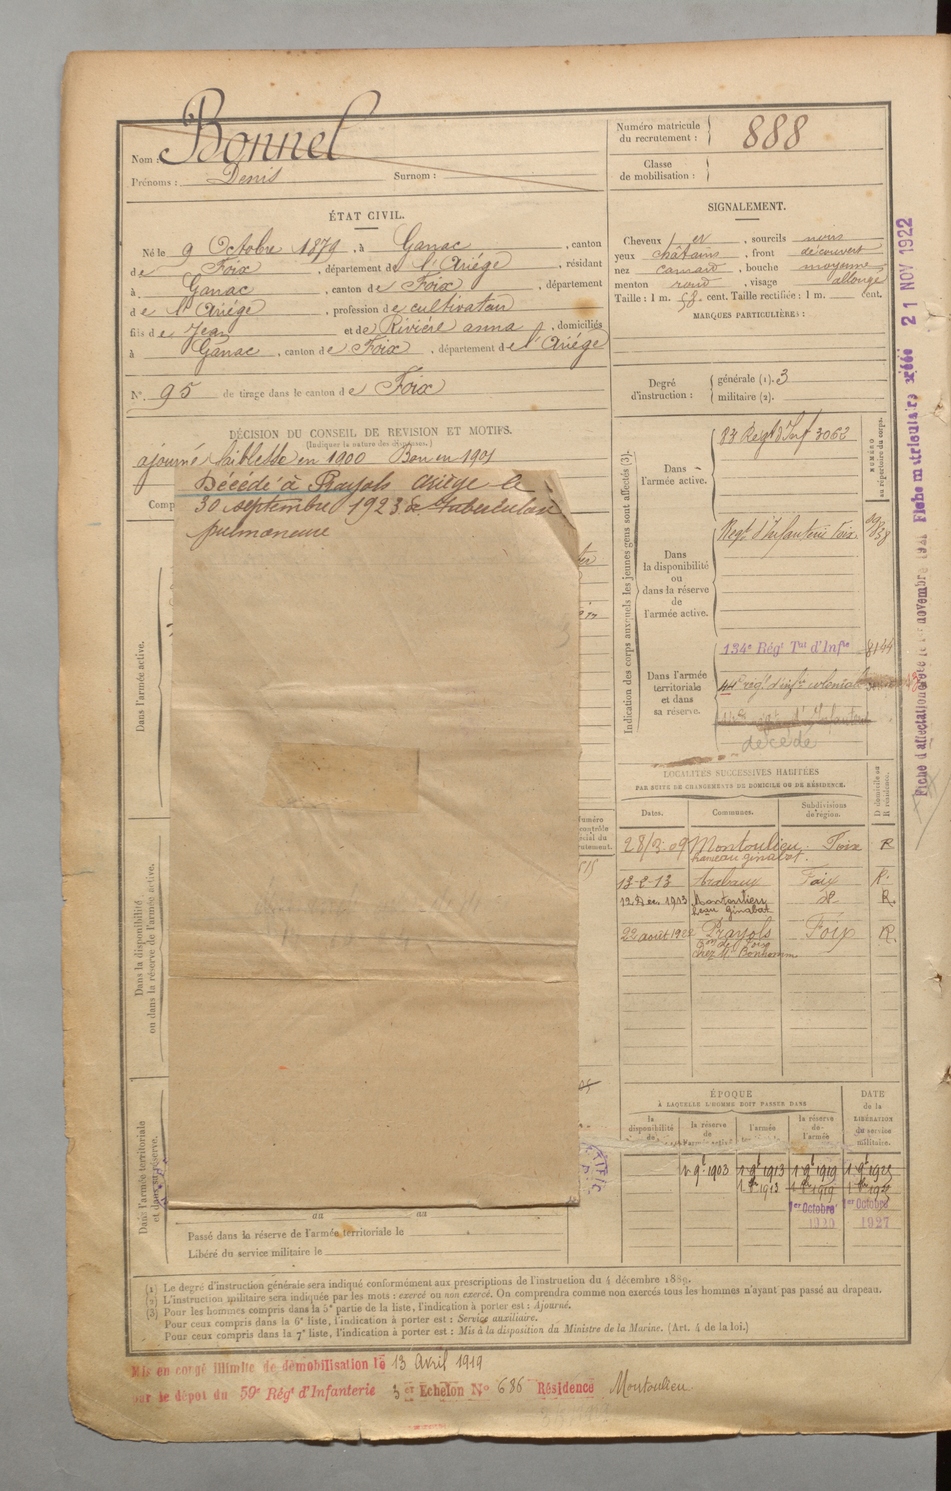 Bonnel
Nom :
Prénoms : Denis Surnom :
Numéro matricule du recrutement : 888
Classe de mobilisation :
ÉTAT CIVIL.
Né le 9 Octobre 1879, à Ganac, canton
de Foix, département de l'Ariége, résidant
à Ganac, canton de Foix, département
de l'Ariége, profession de cultivateur
fils de Jean et de Riviére anna, domiciliés
à Ganac, canton de Foix, département de l'Ariége
N° 95 de tirage dans le canton de Foix
SIGNALEMENT.
Cheveux et, sourcils noirs
yeux châtains, front découvert
nez camard, bouche moyenne
menton rond, visage allongé
Taille : 1 m. 58 cent. Taille rectifiée : 1 m. cent.
MARQUES PARTICULIÈRES :
Degré d'instruction : générale (1). 3
militaire (2).
DÉCISION DU CONSEIL DE REVISION ET MOTIFS.
(Indiquez la nature des dispenses.)
ajourné faiblesse en 1900 Bon en 1901
Comp
Décédé à Prayols Ariège le
30 septembre 1923 de tuberculose
pulmonaire
Dans l'armée active.
Dans la disponibilité ou dans la réserve de l'armée active.
Dans l'armée territoriale et dans sa réserve.
Indication des corps auxquels les jeunes gens sont affectés (3).
NUMÉRO au répertoire du corps.
Dans l'armée active.
83 Regt d'Inf 3062
Dans la disponibilité ou dans la réserve de l'armée active.
Regt d'Infanterie Foix.
Dans l'armée territoriale et dans sa réserve.
134e Régt Tal d'Infie 8144
44e rég. d'infie coloniale
décédé
LOCALITÉS SUCCESSIVES HABITÉES
PAR SUITE DE CHANGEMENTS DE DOMICILE OU DE RÉSIDENCE.
Dates. Communes. Subdivisions de région. D domicile ou R résidence.
28/3-09 Montoulieu. Foix R
hameau ginabat.
13-2-13 Foix R.
12 Dec 1913 Montoulieu R.
heau Ginabat
22 août 1922 Prayols Foix R.
chez M. Bonhomme
ÉPOQUE
À LAQUELLE L'HOMME DOIT PASSER DANS
DATE de la LIBÉRATION du service militaire.
la disponibilité de la réserve de l'armée l'armée la réserve de l'armée
1903 1913 1919 1925
1913 1919
1er Octobre 1er Octobre
1920 1927
au au
Passé dans la réserve de l'armée territoriale le
Libéré du service militaire le
(1) Le degré d'instruction générale sera indiqué conformément aux prescriptions de l'instruction du 4 décembre 1889.
(2) L'instruction militaire sera indiquée par les mots : exercé ou non exercé. On comprendra comme non exercés tous les hommes n'ayant pas passé au drapeau.
(3) Pour les hommes compris dans la 5e partie de la liste, l'indication à porter est : Ajourné.
Pour ceux compris dans la 6e liste, l'indication à porter est : Service auxiliaire.
Pour ceux compris dans la 7e liste, l'indication à porter est : Mis à la disposition du Ministre de la Marine. (Art. 4 de la loi.)
Mis en congé illimité de démobilisation le 13 Avril 1919
par le dépôt du 59e Régt d'Infanterie 3er Echelon No 686 Résidence Montoulieu
21 NOV 1922